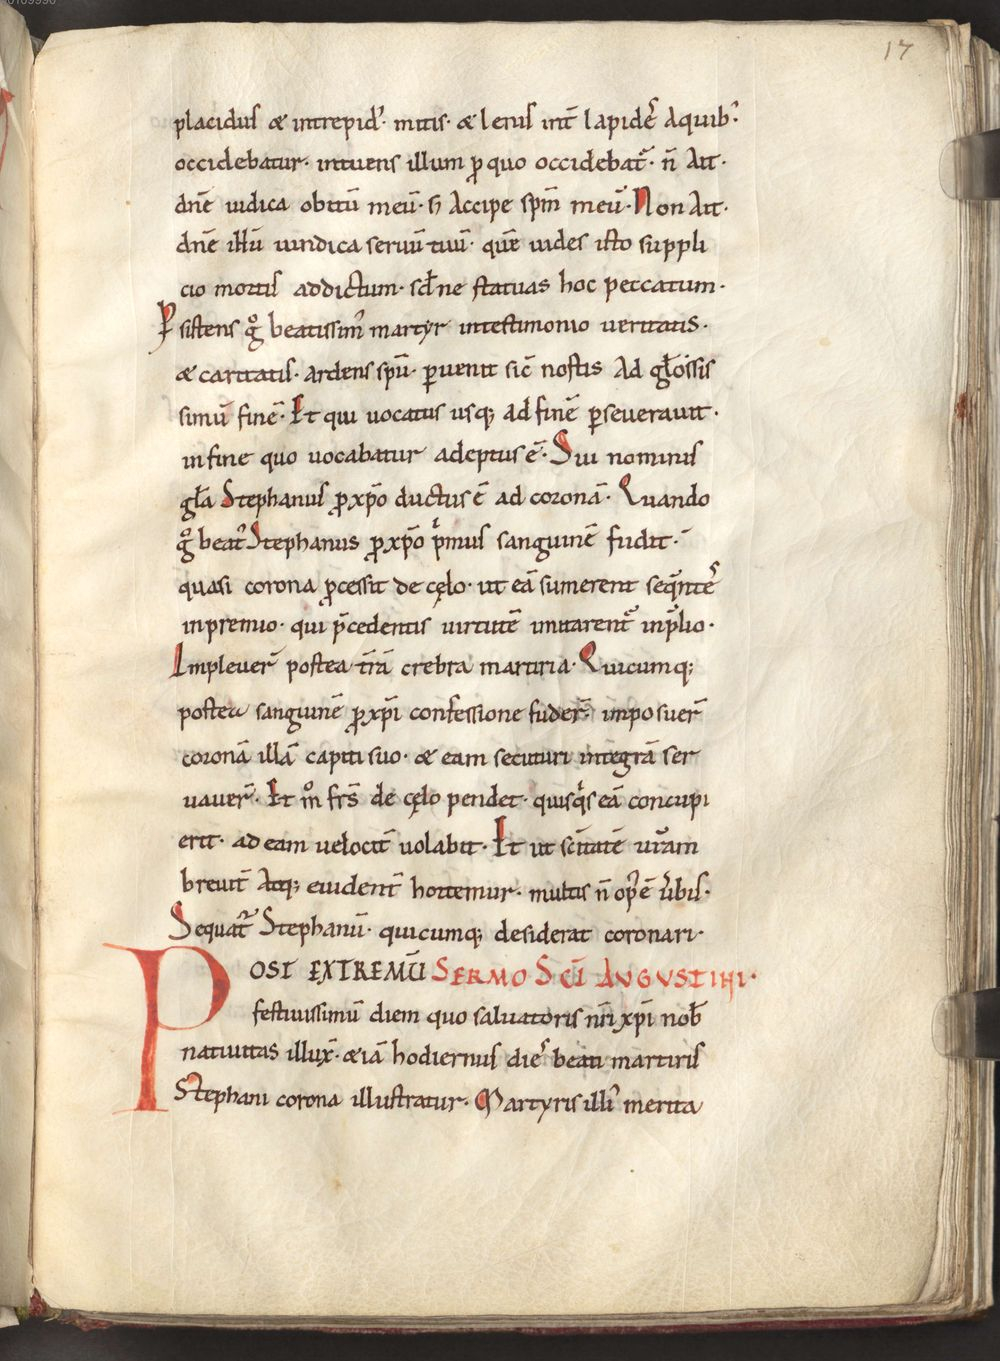 17
placidus & intrepid᾿. mitis. & lenis int̄ lapidēs Aquib᾿.
occidebatur. intuens illum ꝓ quo occidebat᷑. n̄ Ait.
dn̄e iudica obitū meū. ꞩ Accipe sp̄m meū. Non Ait.
dn̄e illū uindica seruū tuū. quē uides isto suppli
cio mortis addictum. sꝫ ne statuas hoc peccatum.
Ꝑsistens gͦ beatissim᾿ martyr intestimonio ueritatis.
& caritatis. ardens spū. ꝑuenit sic̄ nostis Ad gl̄osissi
simū finē. Et qui uocatus usq; ad finē ꝑseuerauit.
infine quo uocabatur adeptus ē. Sui nominis
gl̄a Stephanus ꝓ xp̄o ductus ē ad coronā. Quando
gͦ beat᾿ Stephanus ꝓ xp̄o pͥmus sanguinē fudit.
quasi corona ꝓcessit de cęlo. ut eā sumerent seqn̄tes
inpremio. qui p̄cedentis uirtutē imitarent᷑ inp̄lio.
Impleuer̄ postea tr̄ā crebra martiria. Quicumq;
postea sanguinē ꝓ xp̄i confessione fuder̄. imposuer̄
coronā illā capiti suo. & eam secuturi integrā ser
uauer̄. Et mͦ frs̄ de cęlo pendet. quisqͥs eā concupi
erit. ad eam uelocit̄ uolabit. Et ut sc̄itatē ur̄am
breuit̄ Atq; euident̄ hortemur. multis n̄ op᾿ ē u̅bis.
Sequat᷑ Stephanū. quicumq; desiderat coronari.
POST EXTREMŪ SERMO SC̄I AVGVSTINI.
festiuissimū diem quo saluatoris nr̄i xp̄i nob̄
natiuitas illux̄. & iā hodiernus dies beati martiris
Stephani corona illustratur. Martyris illi᾿ merita